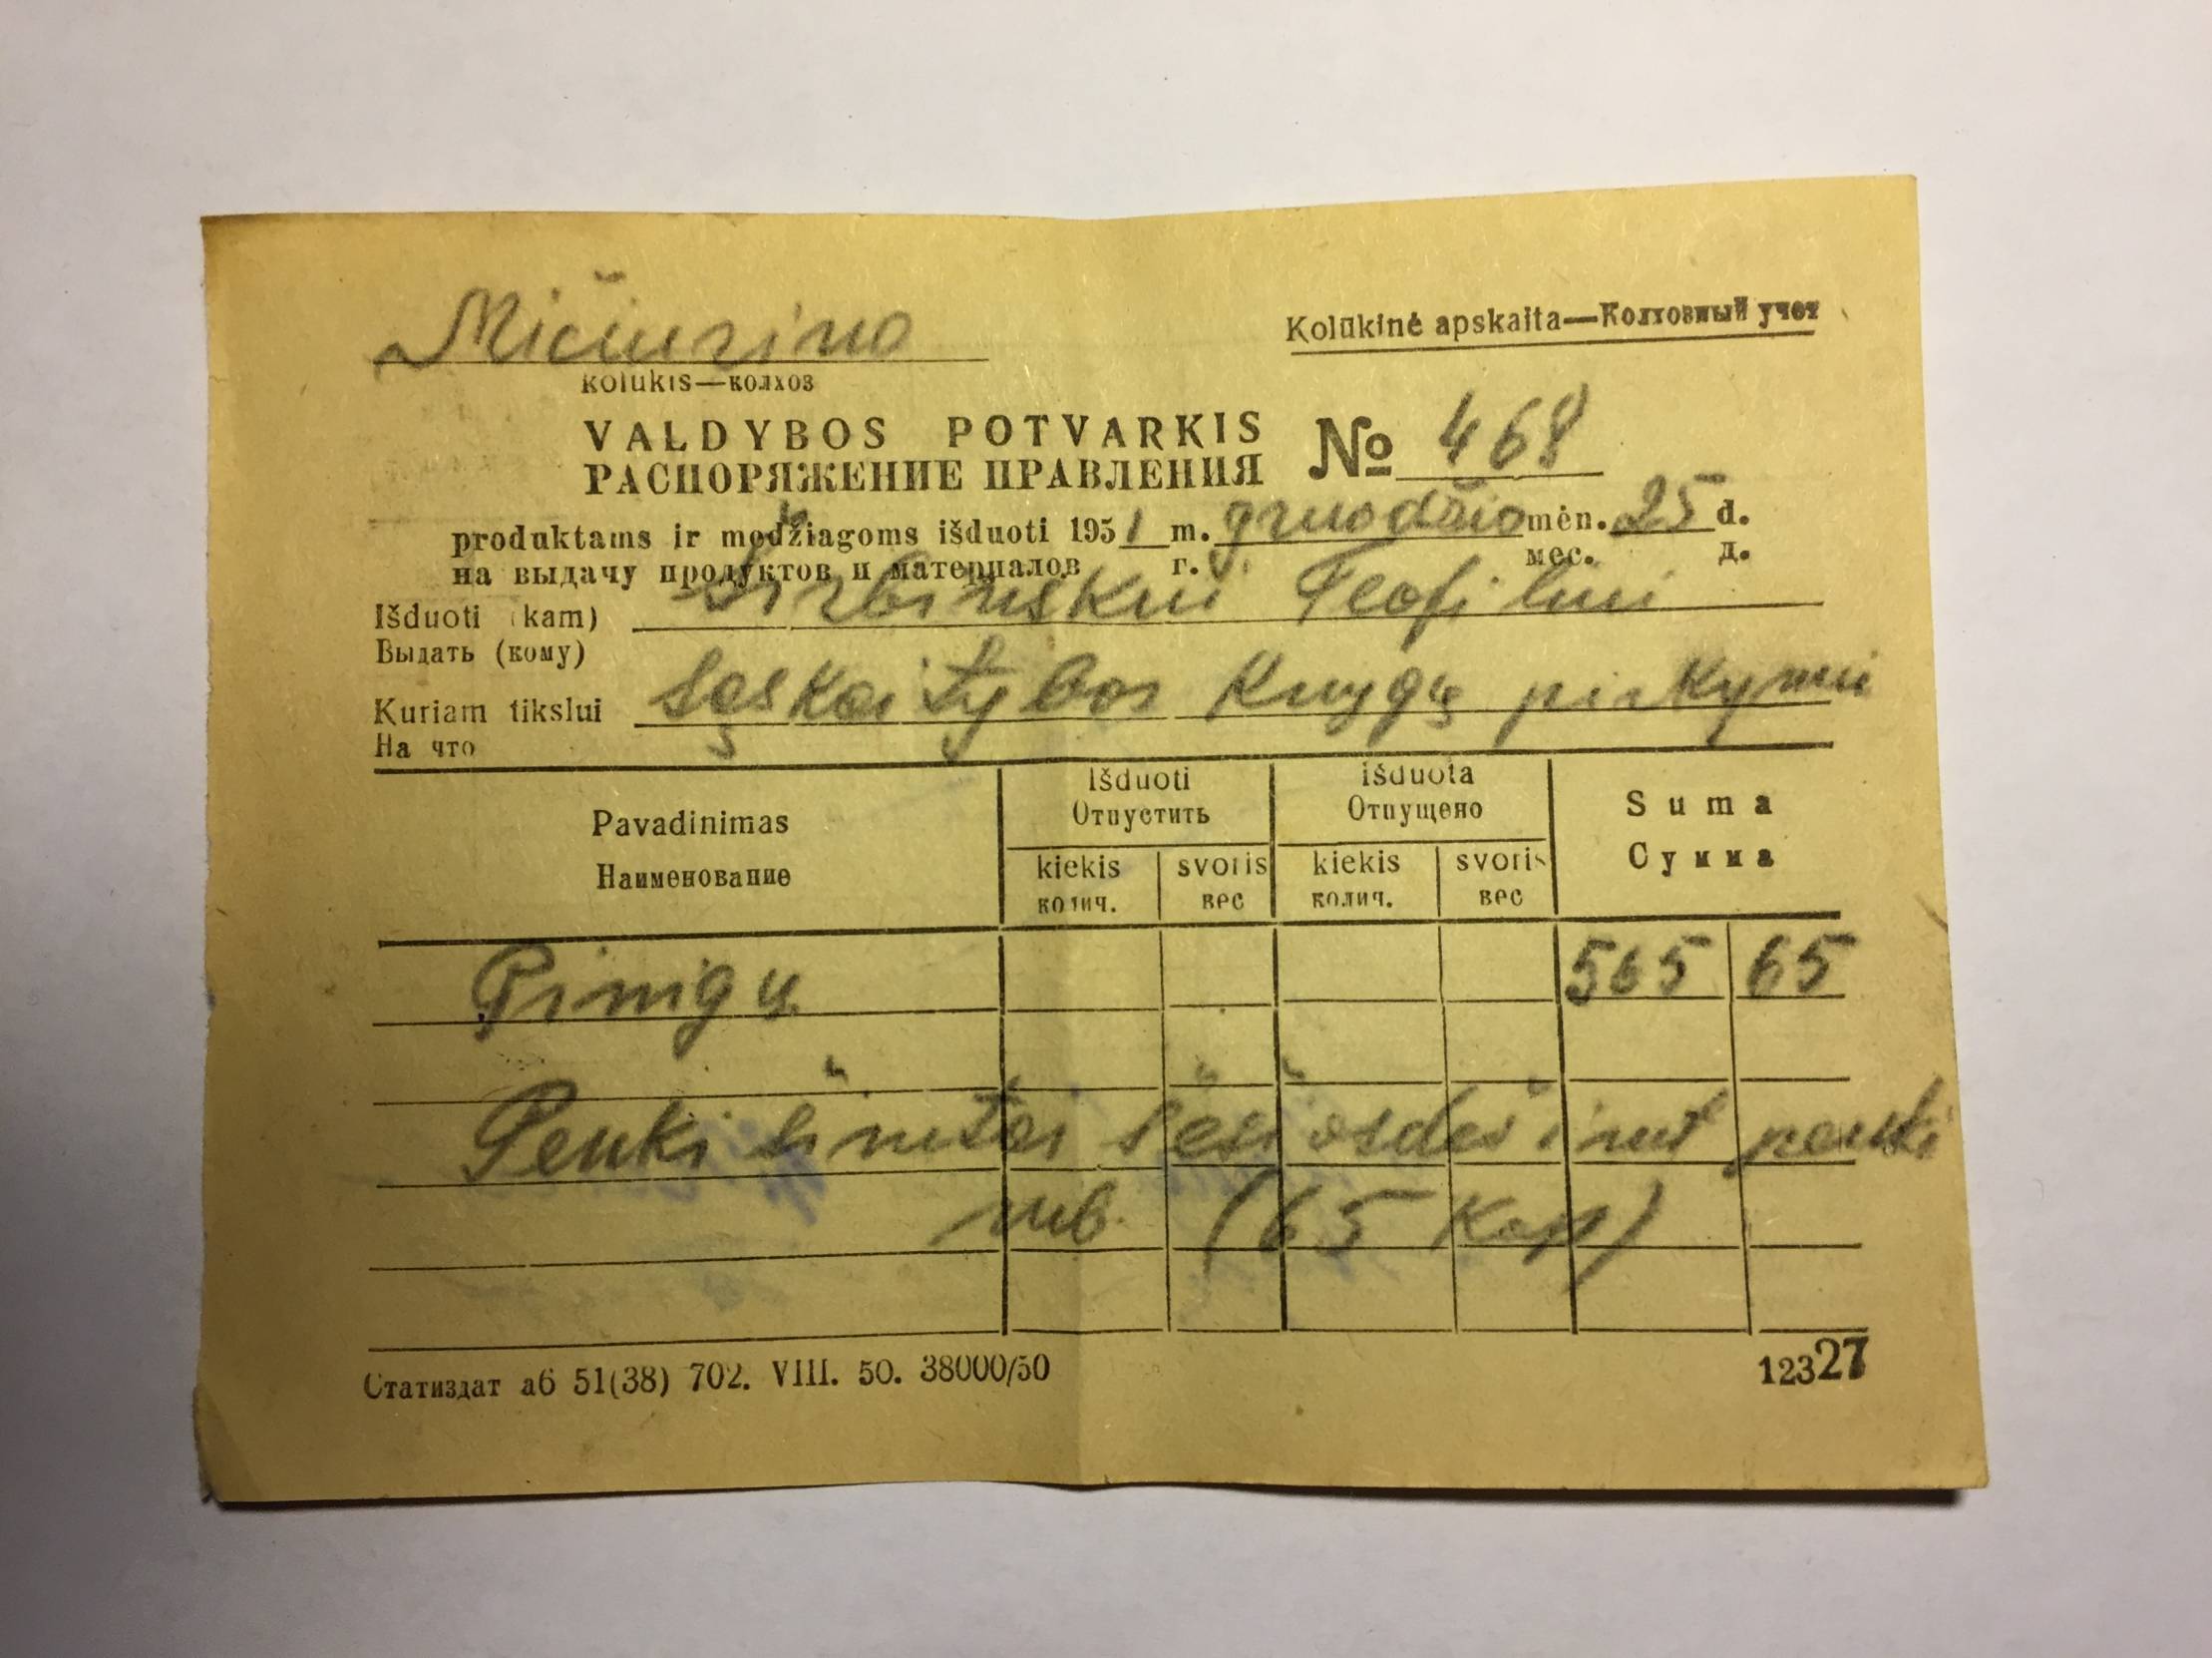 Mičiurino
Kolūkinė apskaita—Колхозный учет
kolūkis—колхоз
VALDYBOS POTVARKIS № 468
РАСПОРЯЖЕНИЕ ПРАВЛЕНИЯ
produktams ir medžiagoms išduoti 1951 m. gruodžio mėn. 25 d.
на выдачу продуктов и материалов г. мес. д.
Išduoti (kam) Teofiliui
Выдать (кому)
Kuriam tikslui Sąskaitybos knygų pirkymui
На что
Pavadinimas Išduoti Išduota Suma
Наименование Отпустить Отпущено Сумма
kiekis svoris kiekis svoris
колич. вес колич. вес
Pinigų 565 65
Penki šimtai šešiasdešimt penki
rub. (65 kap)
Статиздат аб 51(38) 702. VIII. 50. 38000/50 12327